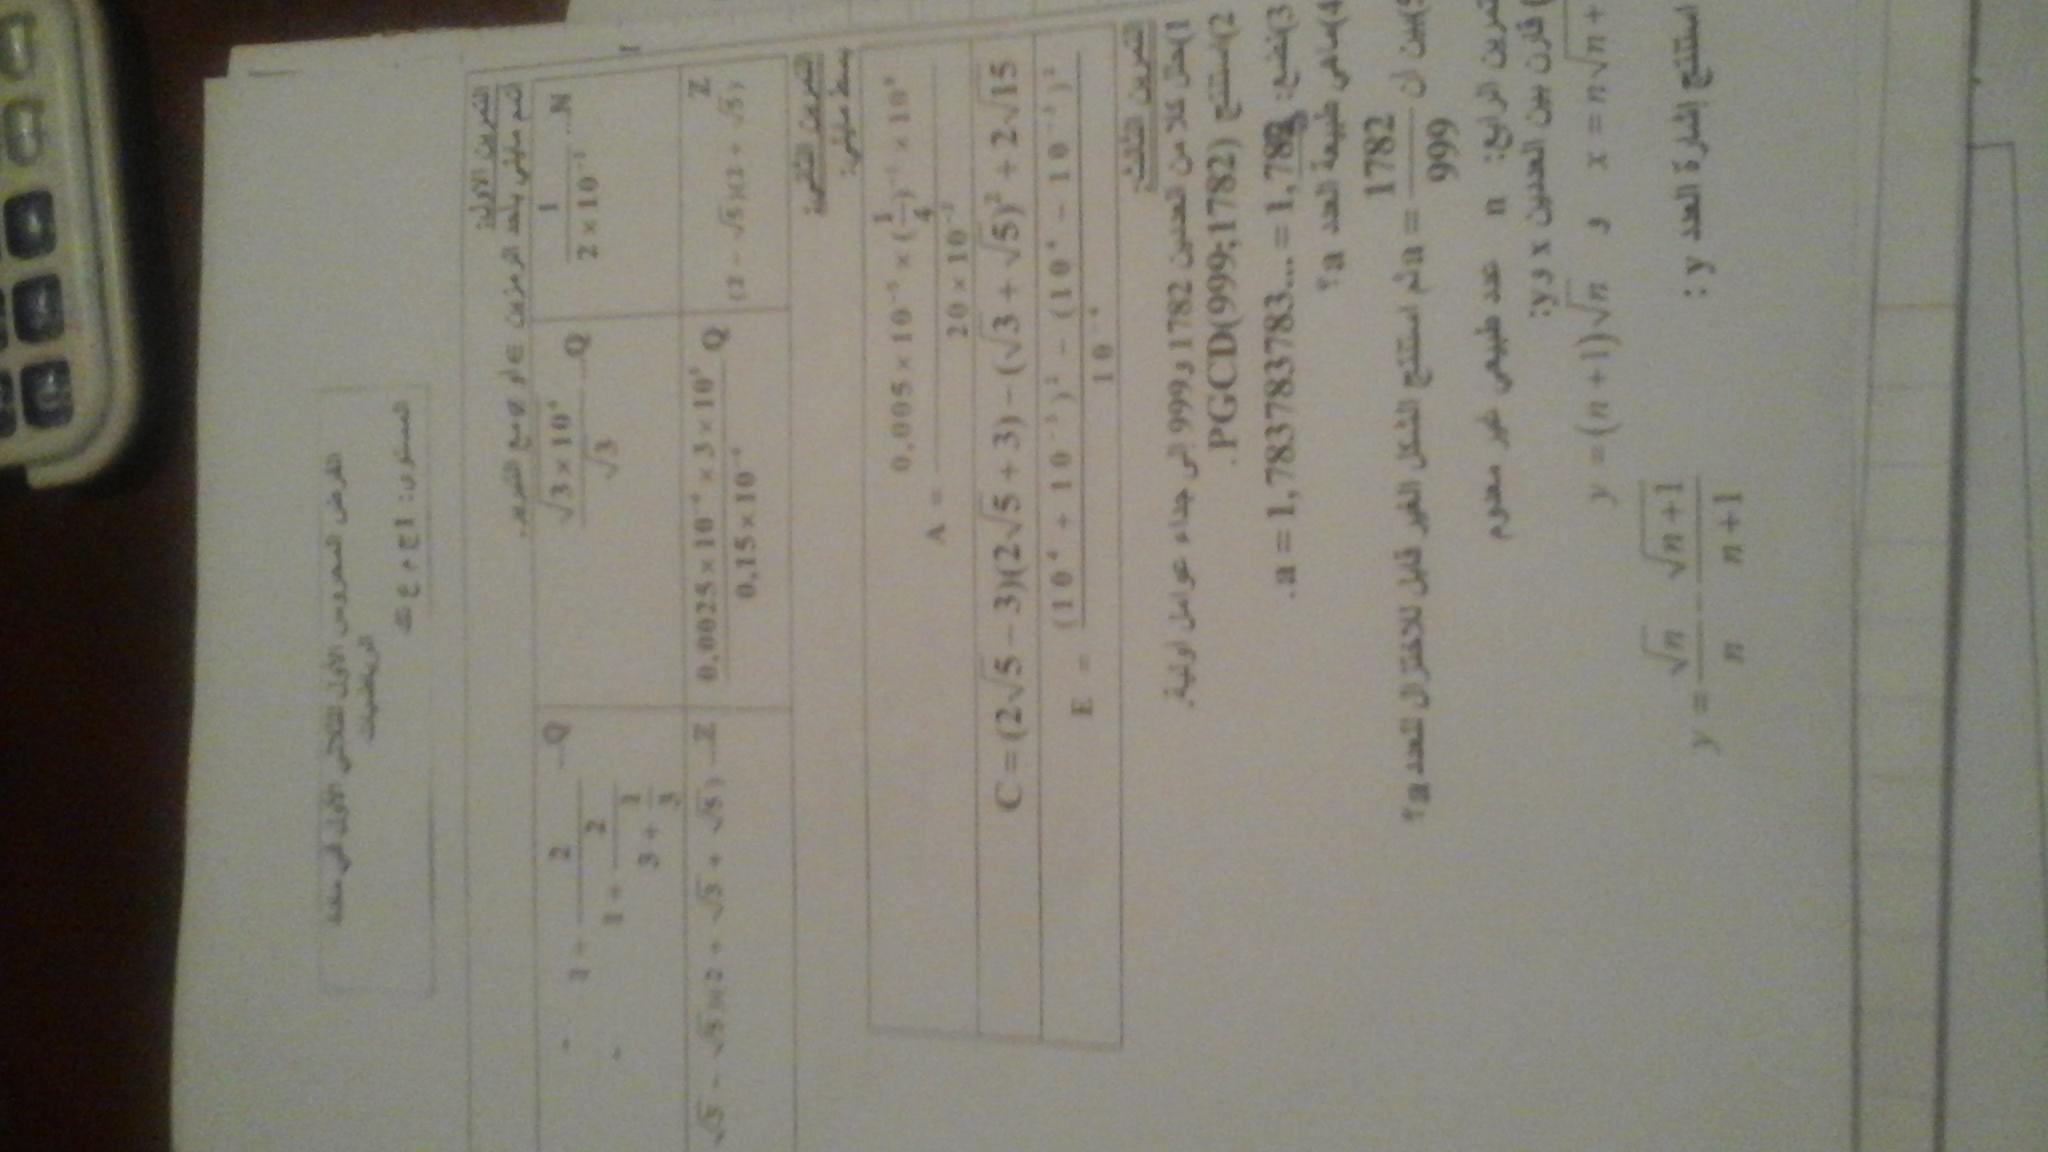 الفرض المحروس الأول للثلاثي الأول في مادة الرياضيات
المستوى: 1 ج م ع تك
التمرين الأول:
اتمم مايلي بأحد الرمزين ∈ او ∉ مع التبرير.
1/(2×10⁻¹) ...N
√(3×10⁴)/√3 ...Q
1+2/(1+2/(3+1/3)) ...Q
(2-√5)(2+√5) Z
(0,0025×10⁻⁴×3×10⁵)/(0,15×10⁻⁴) Q
√3-√5)(2+√3+√5) ...Z
التمرين الثاني:
بسط مايلي:
A = (0,005×10⁻⁵×(1/4)⁻¹×10⁴)/(20×10⁻²)
C=(2√5-3)(2√5+3)-(√3+√5)²+2√15
E = ((10⁴+10⁻³)²-(10⁴-10⁻³)²)/10⁻⁴
التمرين الثالث:
1)حلل كلا من العددين 1782 و999 الى جداء عوامل اولية.
2)استنتج PGCD(999;1782).
3)نضع: a = 1,783783783.... = 1,783.
4)ماهي طبيعة العدد a؟
بين ان a = 1782/999 ثم استنتج الشكل الغير قابل للاختزال للعدد a؟
التمرين الرابع: n عدد طبيعي غير معدوم
قارن بين العددين x و y:
y=(n+1)√n و x=n√n+
استنتج إشارة العدد y :
y = √n/n - √n+1/n+1